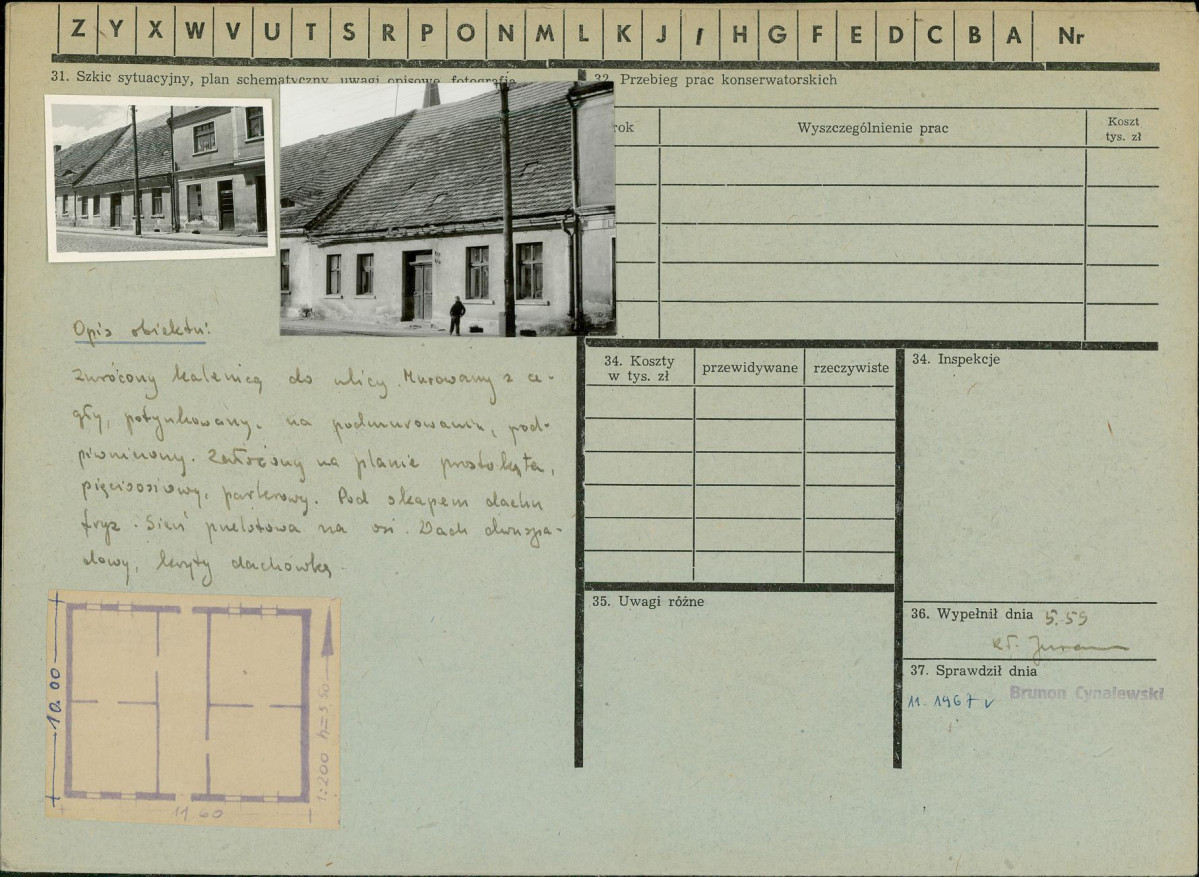 Z Y X W V U T S R P O N M L K J I H G F E D C B A Nr
31. Szkic sytuacyjny, plan schematyczny, uwagi opisowe, fotografia
32. Przebieg prac konserwatorskich
rok
Wyszczególnienie prac
Koszt
tys. zł
Opis obiektu:
Zwrócony kalenicą do ulicy. Murowany z ce-
gły, potynkowany, na podmurowaniu, pod-
piwniczony. Założony na planie prostokąta,
pięcioosiowy, parterowy. Pod okapem dachu
fryz. Sień przelotowa na osi. Dach dwuspa-
dowy, kryty dachówką.
34. Koszty
w tys. zł
przewidywane
rzeczywiste
34. Inspekcje
35. Uwagi różne
36. Wypełnił dnia 5.59
37. Sprawdził dnia
11. 1967
Brunon Cynalewski
10.00
11 60
1:200 h=3,50